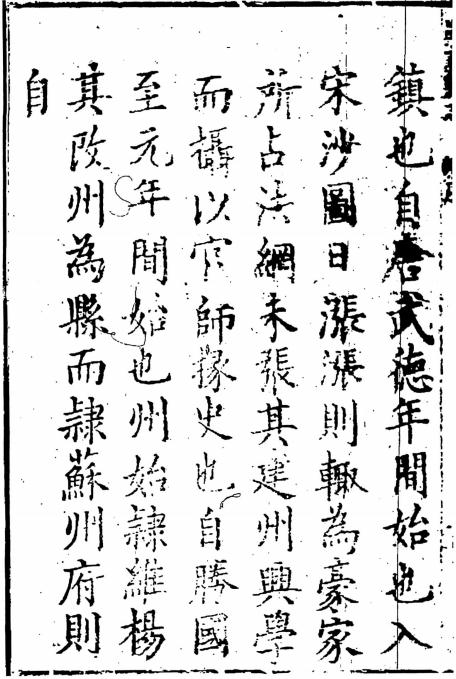 鎮也自唐武德年間始也入
宋沙圖日漲漲則輙為豪家
所占法網未張其建州興學
而攝以官師掾史也自勝國
至元年間始也州始隷維楊
其改州為縣而隷蘇州府則
自